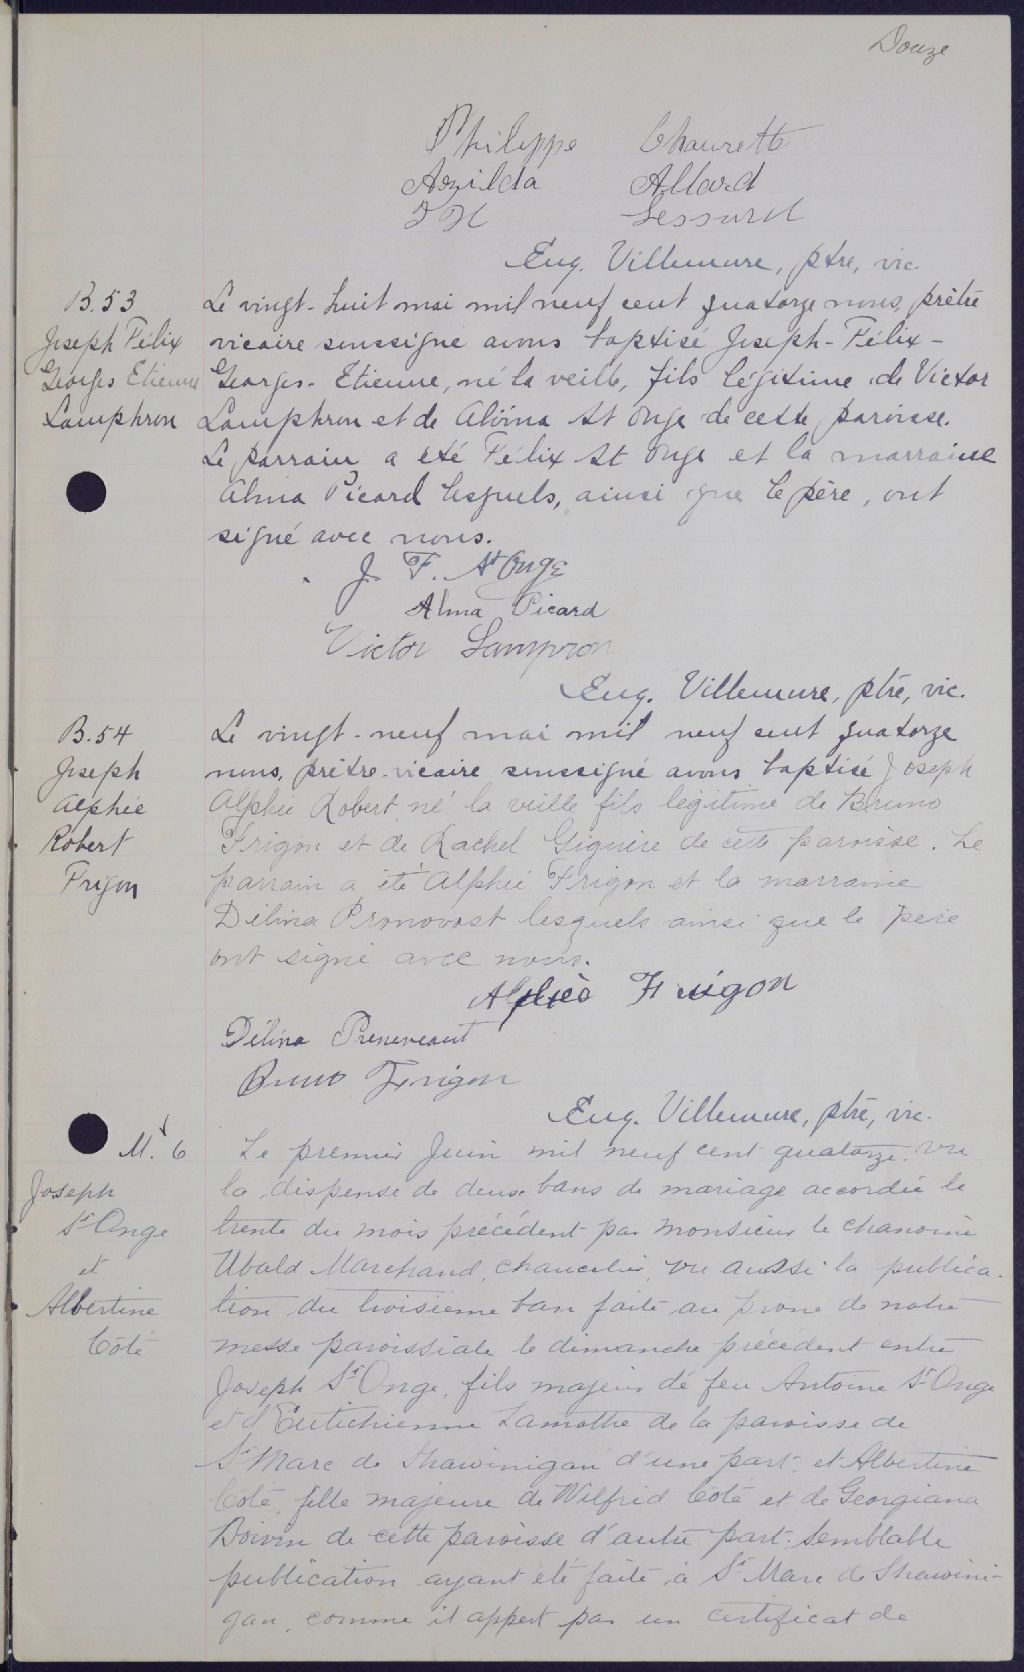 Douze
Philippe Chaurette
Azilda Allard
J H Lessard
Eug. Villemure, ptre, vic.
B. 53
Joseph Félix
Georges Etienne
Lamphron
Le vingt-huit mai mil neuf cent quatorze nous, prêtre
vicaire soussigné avons baptisé Joseph-Félix-
Georges-Etienne, né la veille, fils légitime de Victor
Lamphron et de Alvina St Onge de cette paroisse.
Le parrain a été Félix St Onge et la marraine
Alma Picard lesquels, ainsi que le père, ont
signé avec nous.
J. F. St Onge
Alma Picard
Victor Lampron
Eug. Villemure, ptre, vic.
B. 54
Joseph
Alphée
Robert
Frigon
Le vingt-neuf mai mil neuf cent quatorze
nous, prêtre-vicaire soussigné avons baptisé Joseph
Alphée Robert né la veille fils légitime de Bruno
Frigon et de Rachel Giguère de cette paroisse. Le
parrain a été Alphée Frigon et la marraine
Délina Pronovost lesquels ainsi que le père
ont signé avec nous.
Alphée Frigon
Délina Preneveaut
Bruno Frigon
Eug. Villemure, ptre, vic.
M. 6
Joseph
St Onge
et
Albertine
Côté
Le premier Juin mil neuf cent quatorze, vu
la dispense de deux bans de mariage accordée le
trente du mois précédent par Monsieur le chanoine
Ubald Marchand, chancelier, vu aussi la publica-
tion du troisième ban faite au prone de notre
messe paroissiale le dimanche précédent entre
Joseph St Onge, fils majeur de feu Antoine St Onge
et d'Eutichienne Lamothe de la paroisse de
St Marc de Shawinigan d'une part, et Albertine
Côté, fille majeure de Wilfrid Côté et de Georgiana
Boivin de cette paroisse d'autre part; semblable
publication ayant été faite à St Marc de Shawini-
gan, comme il appert par un certificat de